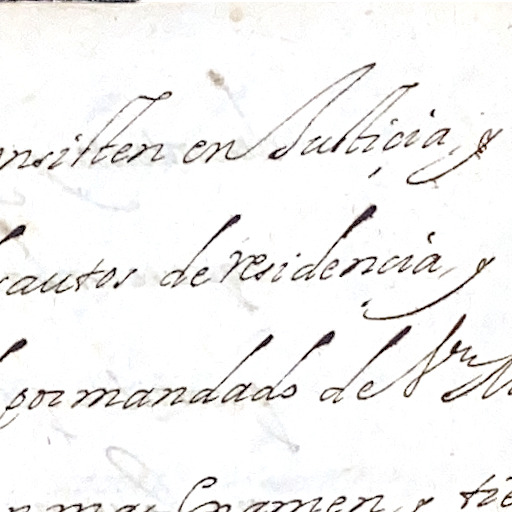 onsisten en Justicia, y
autos de residencia, y
por mandado de Vr̃a
mas Examen, y tie